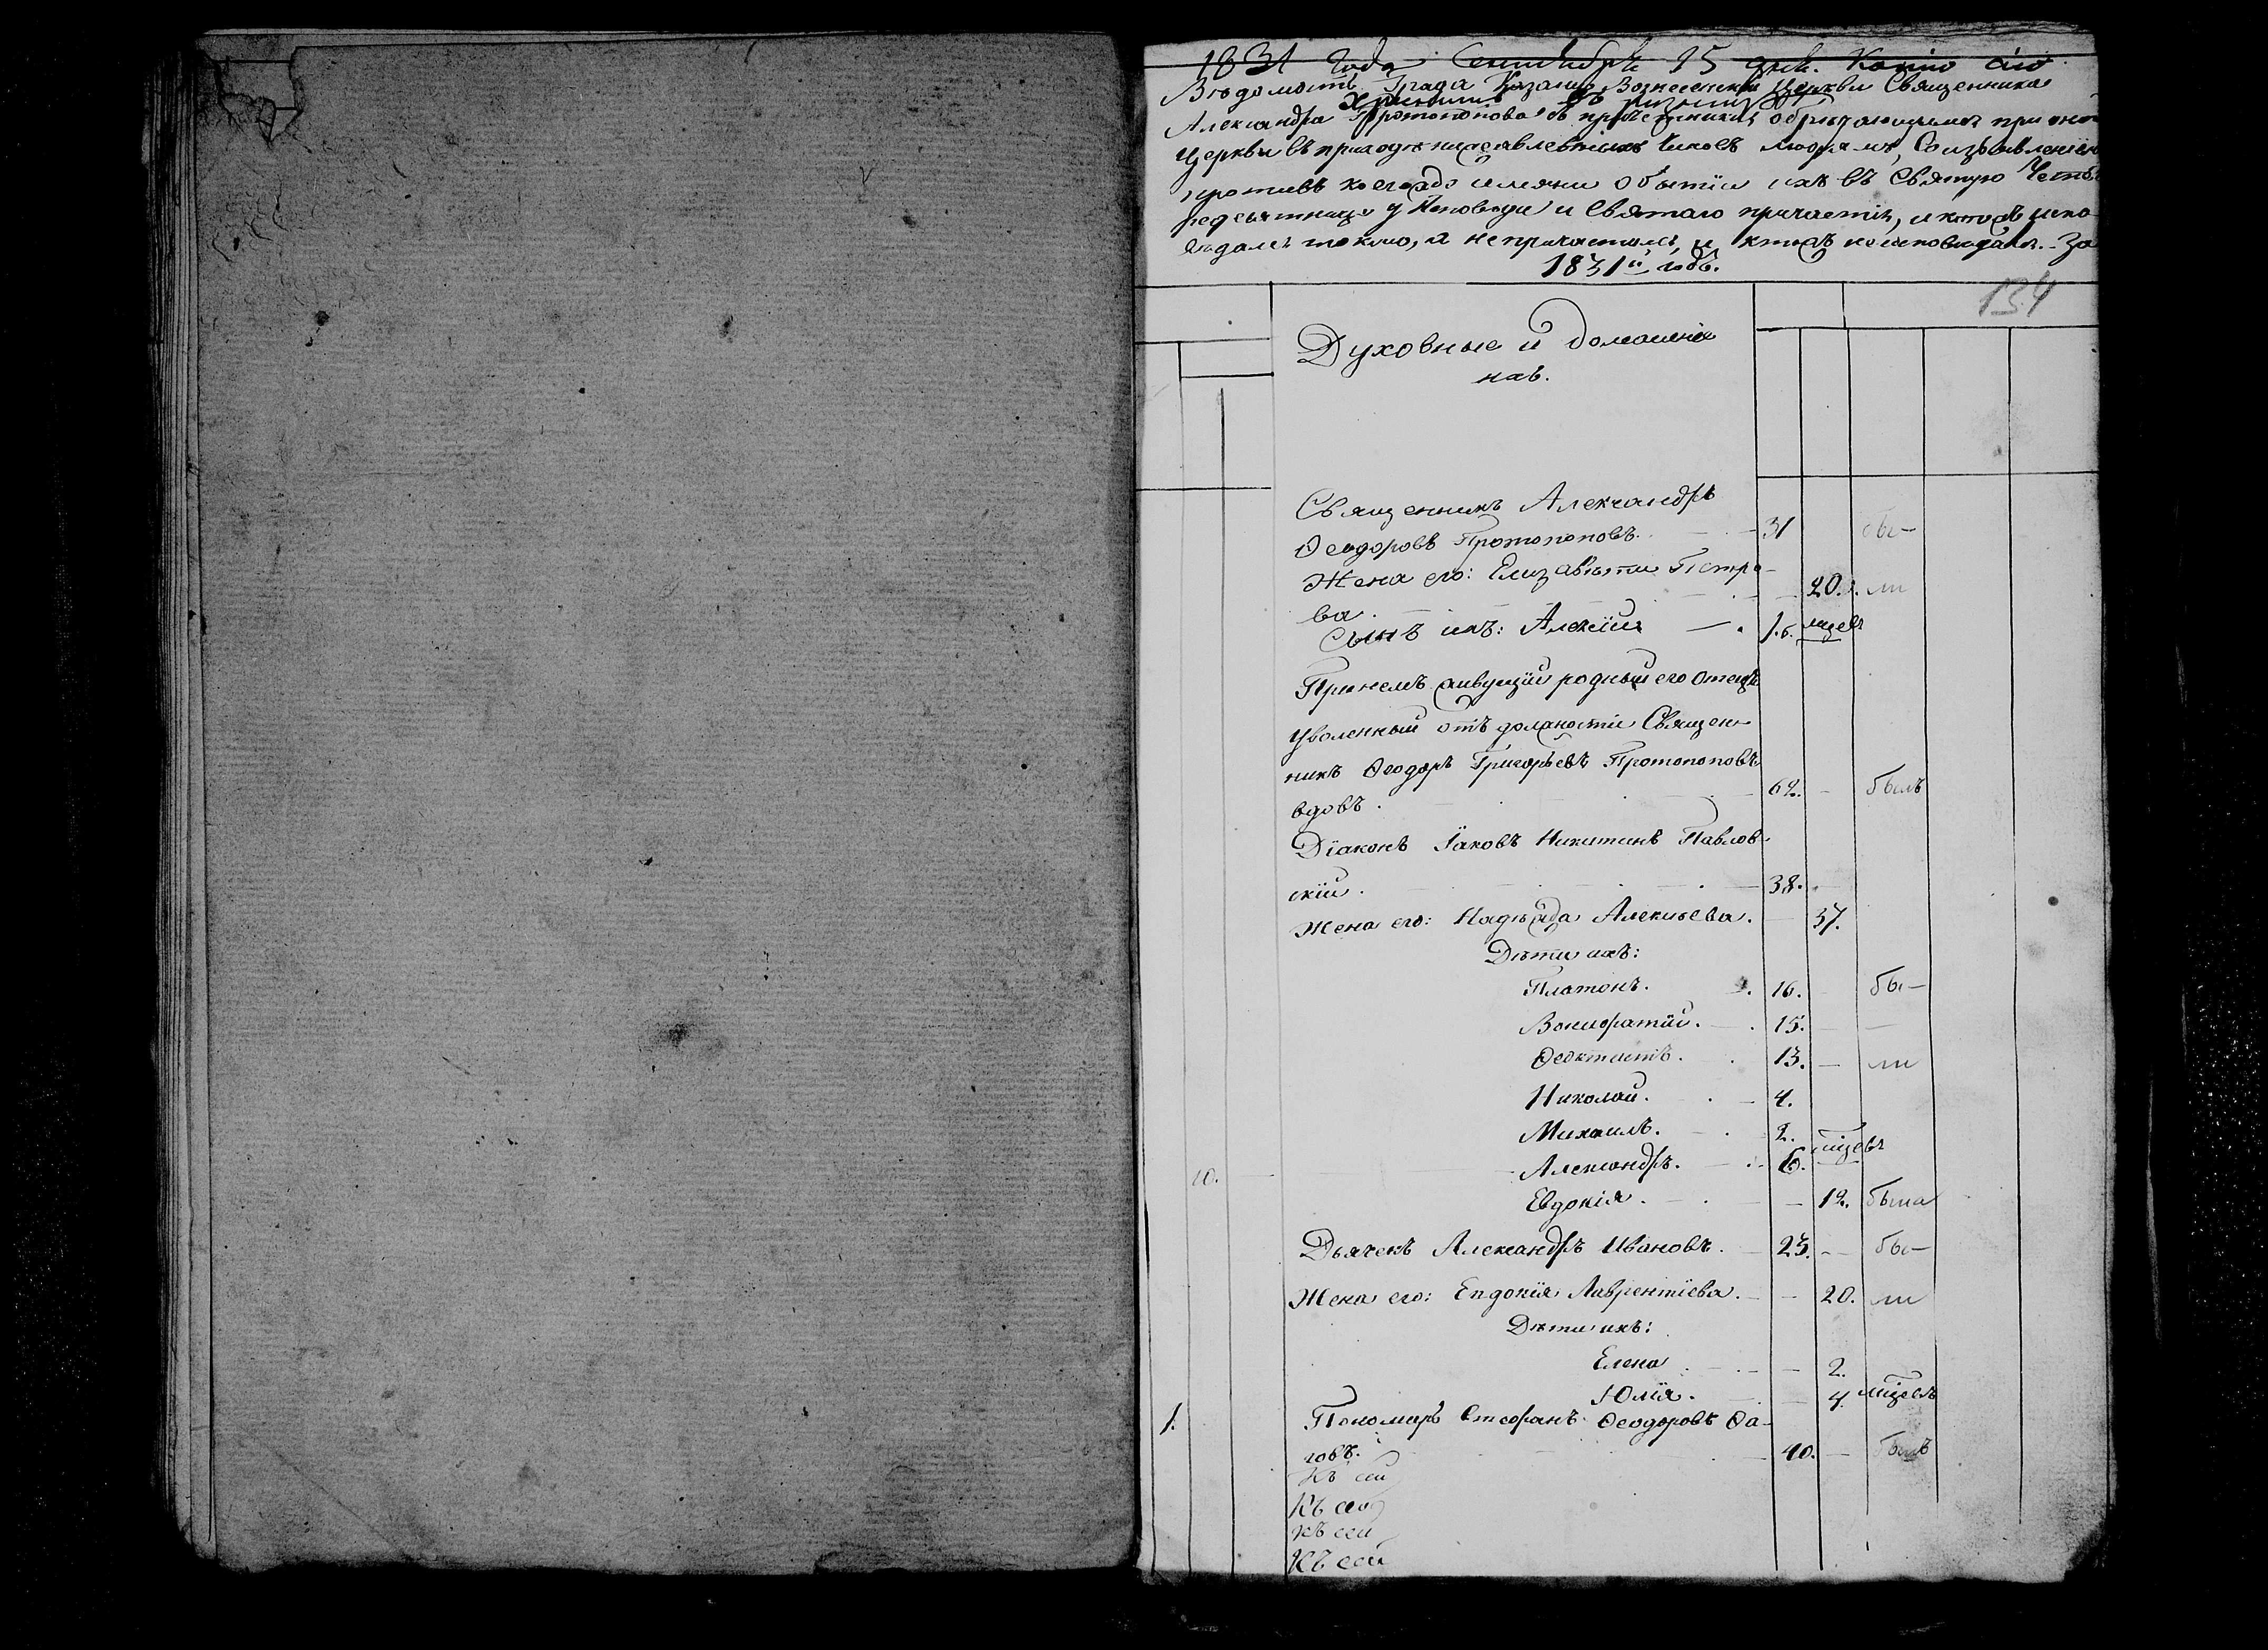 1831 года Сентября 15 дня. Копію сію
Вѣдомость Града Казани, Вознесенской Церкви Священника
хранить въ ризницѣ
Александра Протопопова съ причетники, обрѣтающимся при оной
Церкви въ приходѣ нижеявленныхъ чиновъ людямъ, Со изъявленіемъ
противъ коегождо имяни о бытіи ихъ въ Святую Четы-
редесятницу у Исповѣди и Святаго причастія, и ктожъ испо-
вѣдался токмо, а не причастился, и ктожъ не исповѣдался. За
1831й годъ.
134
Духовные и домашніе
ихъ.
Священникъ Александръ
Ѳеодоровъ Протопоповъ. 31 бы-
Жена его: Елизавета Петро-
ва. 20. ли
Сынъ ихъ: Алексій 1.
При немъ живущій родный его Отецъ
уволенный отъ должности Священ-
никъ Ѳеодоръ Григорьевъ Протопоповъ
вдовъ. 62. былъ
Діаконъ Іаковъ Никитинъ Павлов-
скій. 38.
Жена его: Надѣжда Алексѣева. 37.
Дѣти ихъ:
Платонъ. 16. бы-
Вонифатій. 15.
Ѳеоктистъ. 13. ли
Николай. 4.
Михаилъ. 2.
10. Александръ. 6. мцевъ
Евдокія. 12. была
Дьячекъ Александръ Ивановъ. 23. бы-
Жена его: Евдокія Лаврентіева. 20. ли
Дѣти ихъ:
Елена 2.
Юлія. 4. мцевъ
1. Пономарь Стефанъ Ѳеодоровъ Ѳа-
говъ. 40. былъ
Къ сей
Къ сей
Къ сей
Къ сей